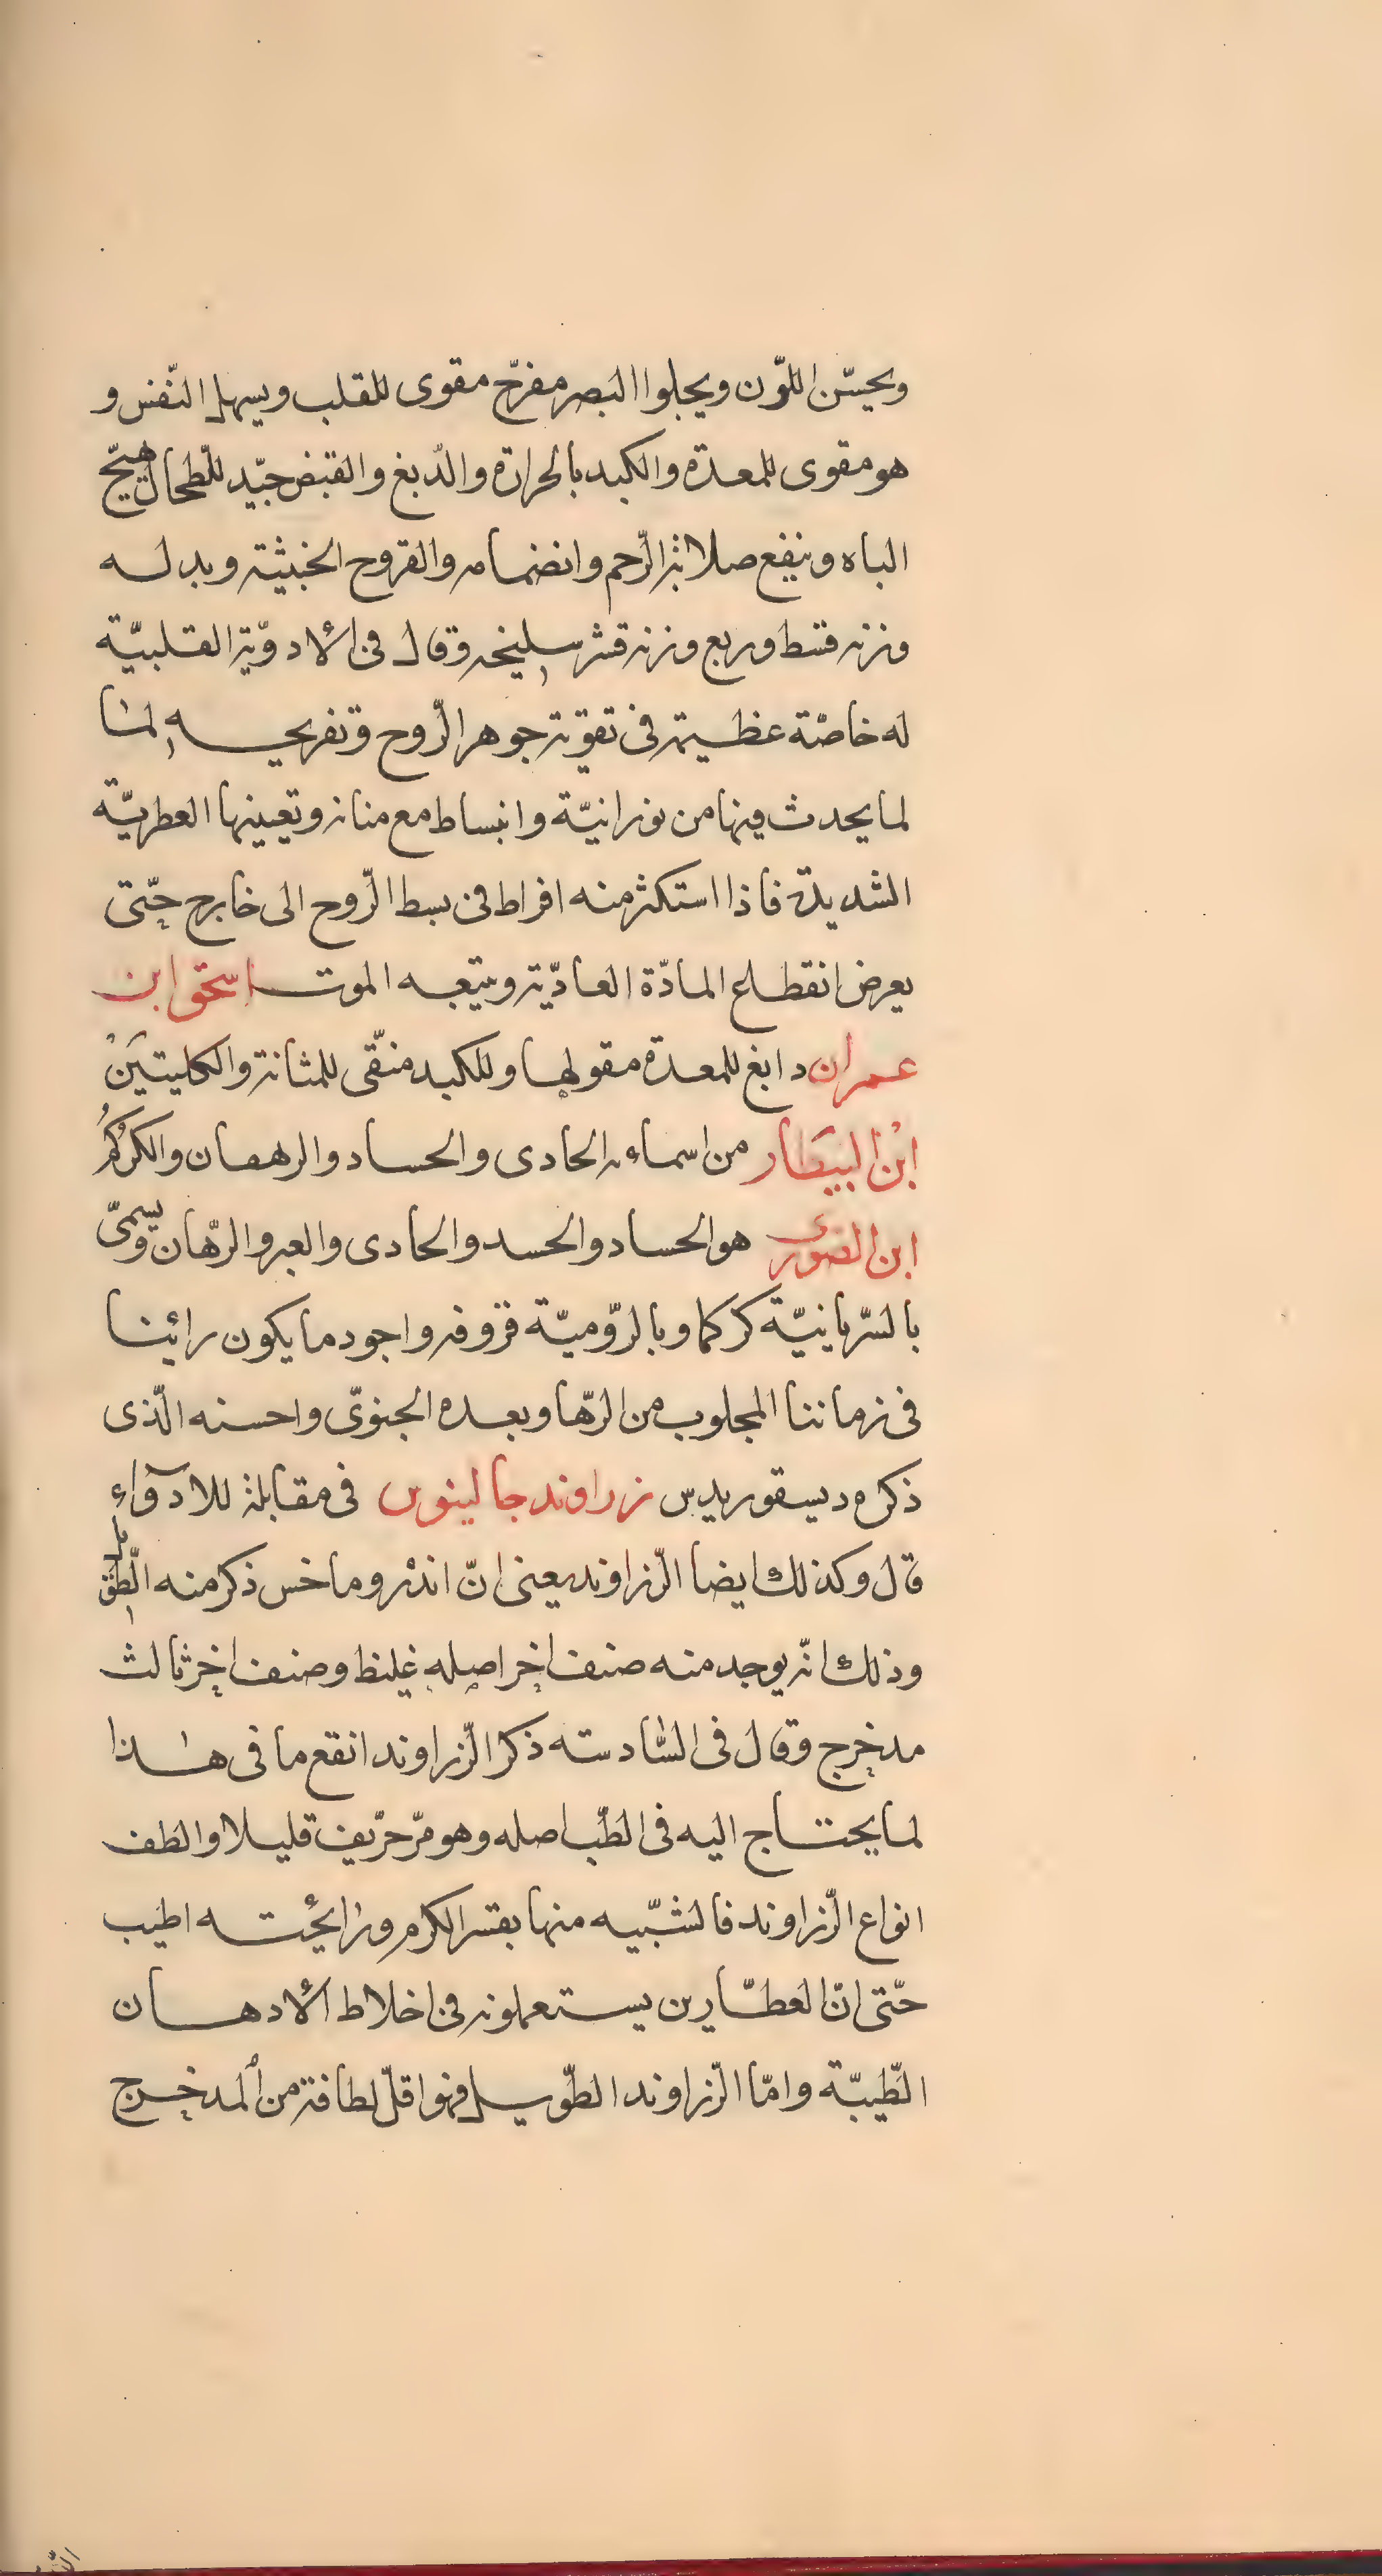 ويحسّن اللّون ويجلوا البصر مفرّح مقوى للقلب ويسهل النّفس و
هو مقوى للمعدة والكبد بالحرارة والدّبغ والقبض جيّد للطّحال يهيّج
الباه وينفع صلابة الرّحم وانضمامه والقروح الخبيثة وبدله
وزنه قسط وربع وزنه قشر سليخه وقال فى الادويّة القلبيّة
له خاصّة عظيمة فى تقوية جوهر الرّوح وتفريحه لما
لما يحدث فيها من نورانيّة وانبساط مع متانة وتعينها العطريّة
الشديدة فاذا استكثر منه افراط فى بسط الرّوح الى خارج حتّى
يعرض انقطاع المادّة العاديّة ويتبعه الموت اسحق ابن
عمران دابغ للمعدة مقولها وللكبد منقّى للمثانة والكليتين
ابن البيطار من اسماءه الحادى والحساد والرهعان والكركم
ابن الصورى هو الحساد والحسد والحادى والعبر والرّهان ويسمّى
بالسّريانيّة كركما وبالرّوميّة قزوفه واجود ما يكون رائنا
فى زماننا المجلوب من الرّها وبعده الجنوىّ واحسنه الّذى
ذكره ديسقوريدس زراوند جالينوس فى مقابلة للادوآء
قال وكذلك ايضا الزّراوند يعنى انّ اندروماخس ذكر منه
وذلك انّه يوجد منه صنف اخر اصله غليظ وصنف اخر ثالث
مدخرج وقال فى السّادسته ذكر الزّراوند انقع ما فى هذا
لما يحتاج اليه فى الطّب اصله وهو مرّ حرّيف قليلا والطف
انواع الزّراوند فالشبّيه منها بقسر الكرم ورايحته اطيب
حتّى انّ العطّارين يستعملونه فى اخلاط الادهان
الطّيبّة وامّا الزّراوند الطّويل فهو اقلّ لطافة من المدخرج